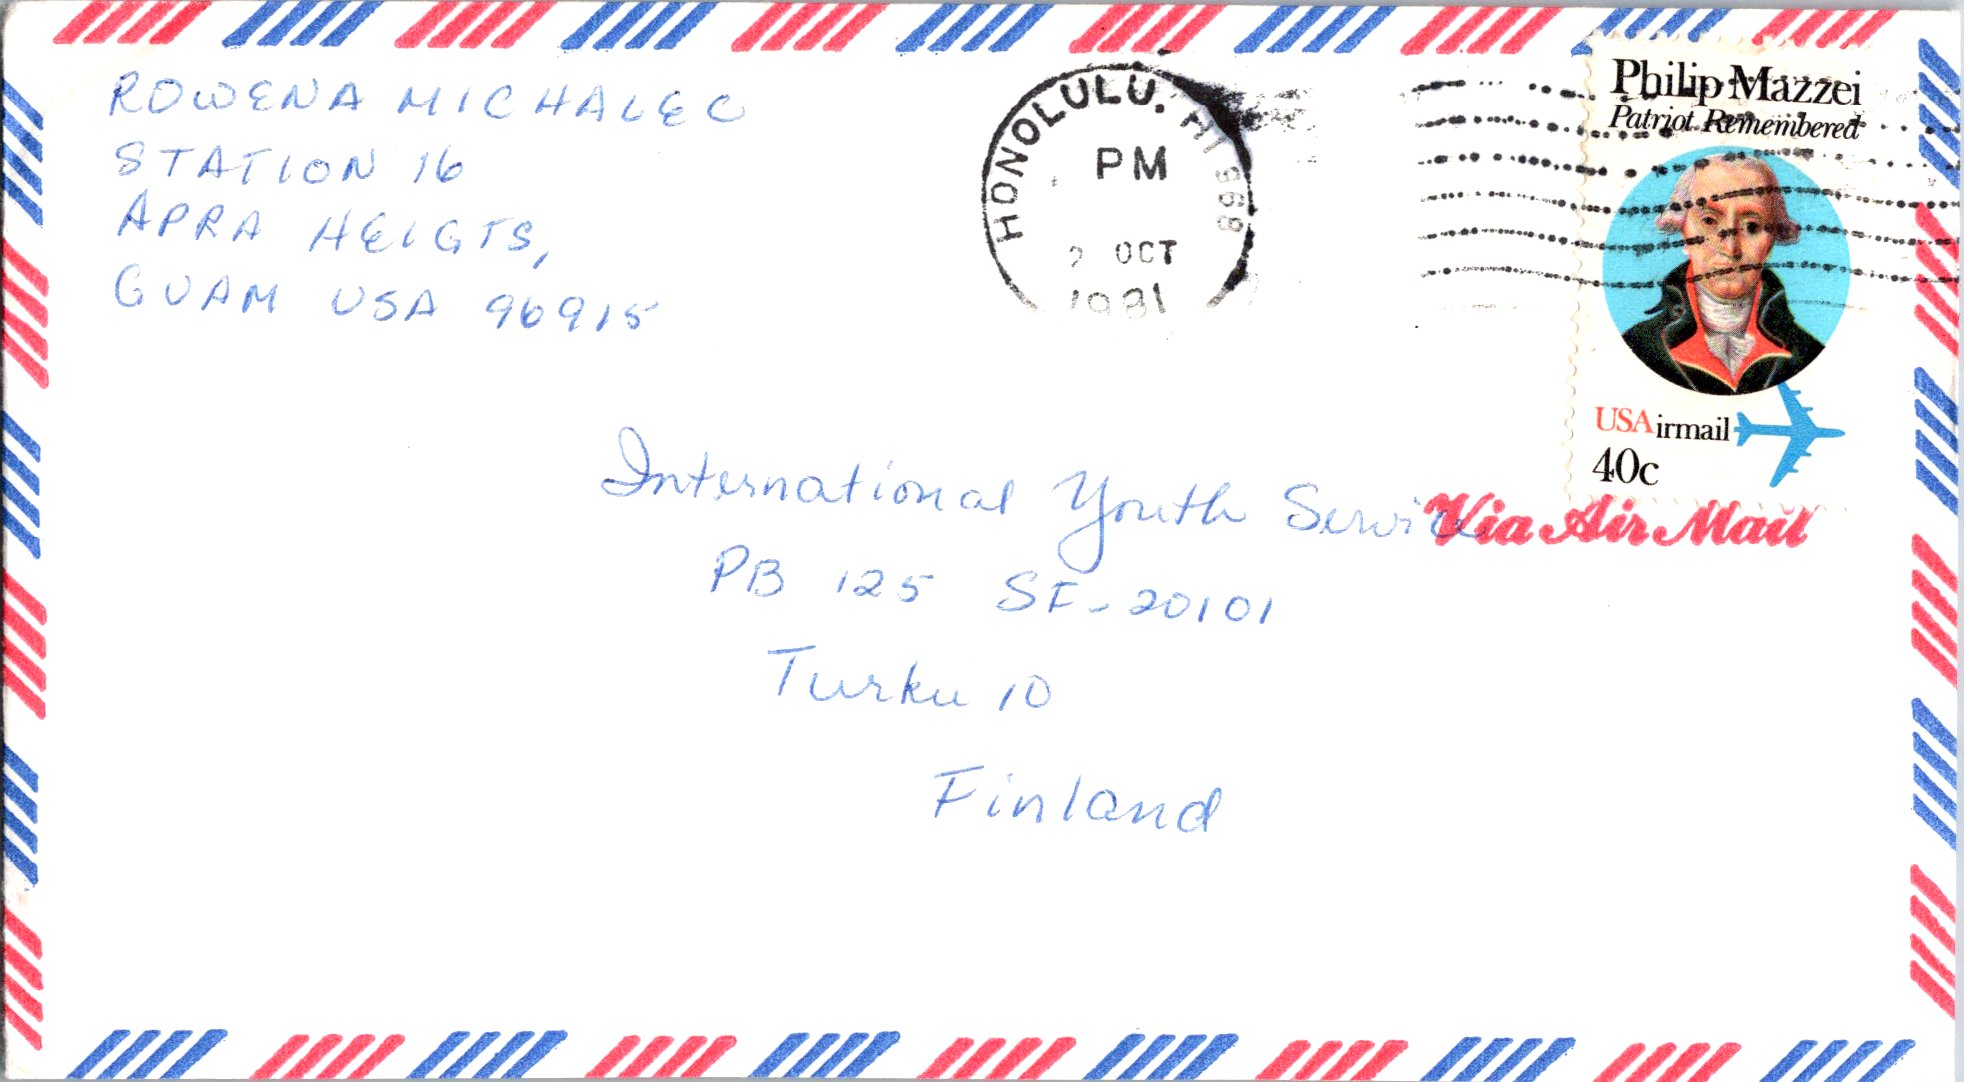 ROWENA MICHALEC
STATION 16
APRA HEIGTS,
GUAM USA 96915
HONOLULU, HI 968
PM
2 OCT
1981
Philip Mazzei
Patriot Remembered
USAirmail
40c
Via Air Mail
International Youth Service
PB 125 SF-20101
Turku 10
Finland